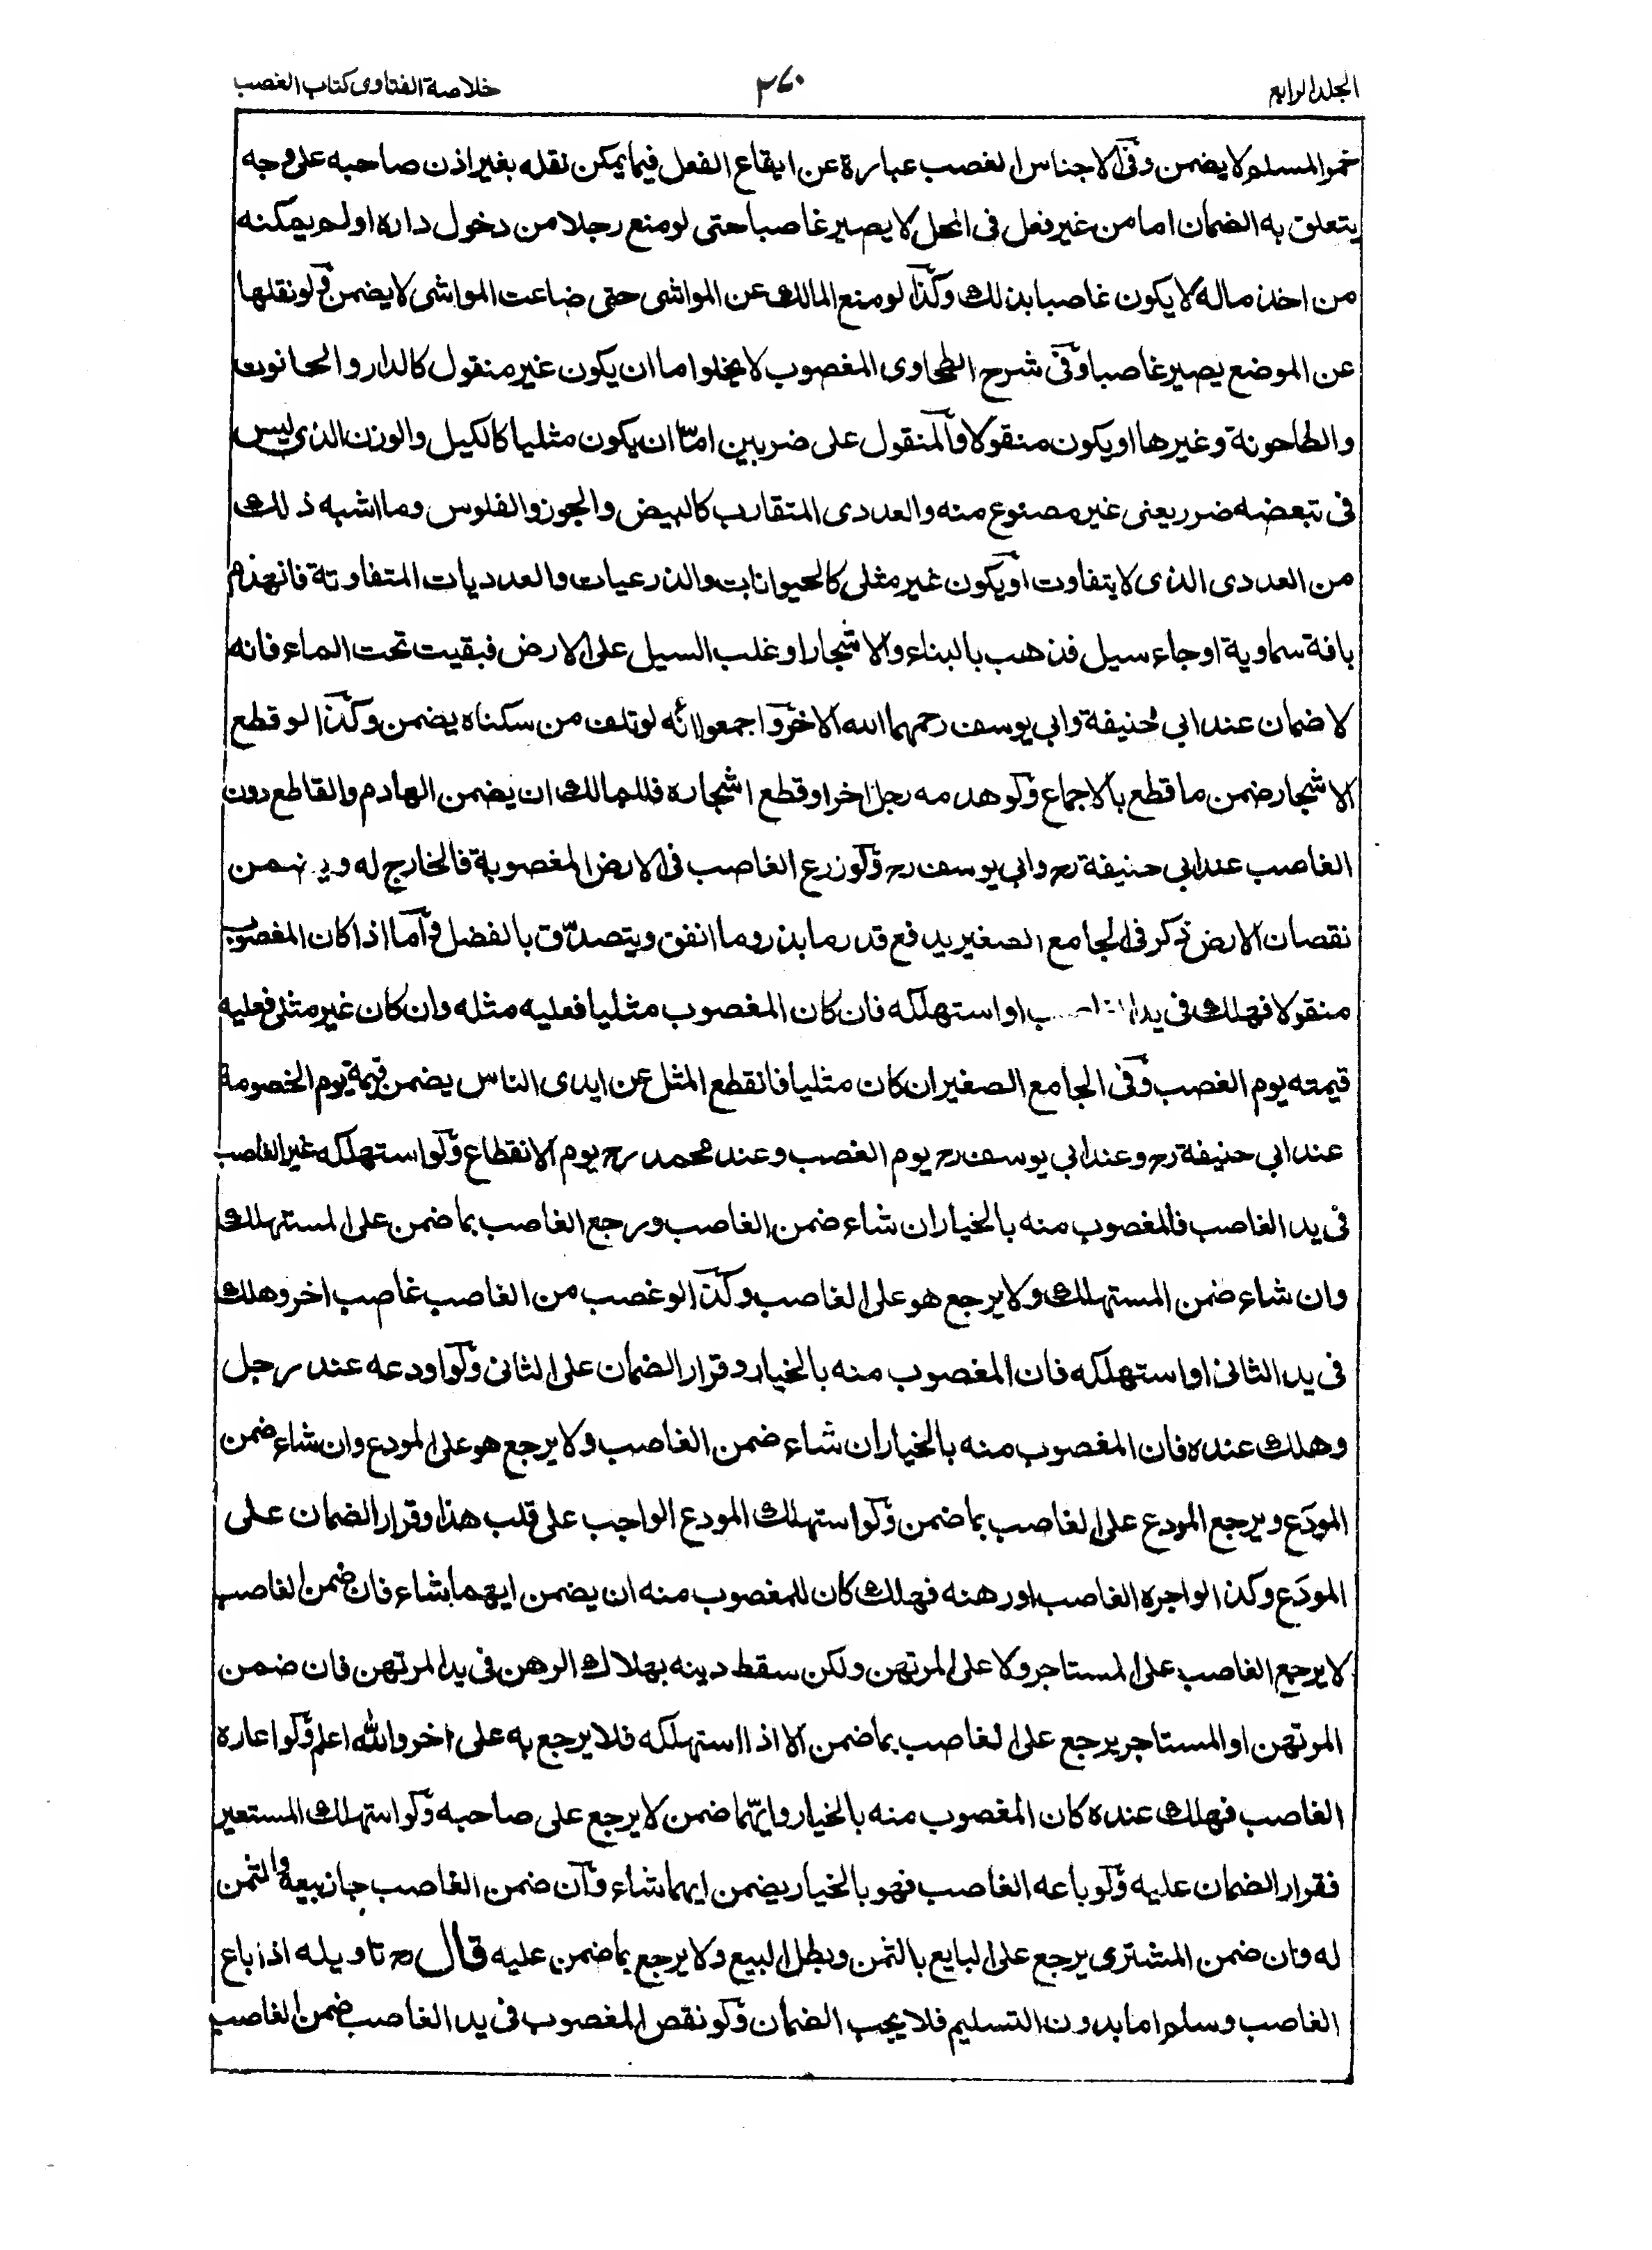 الجلد الرابع ٢٦٠ خلاصة الفتاوى كتاب الغصب
خمر المسلم لا يضمن وفى الاجناس الغصب عبارة عن ايقاع الفعل فيما يمكن نقله بغير اذن صاحبه على وجه
يتعلق به الضمان اما من غير فعل فى المحل لا يصير غاصبا حتى لو منع رجلا من دخول داره او لم يمكنه
من اخذ ماله لا يكون غاصبا بذلك وكذا لو منع المالك عن المواشى حتى ضاعت المواشى لا يضمن ولو نقلها
عن الموضع يصير غاصبا وفى شرح الطحاوى المغصوب لا يخلوا اما ان يكون غير منقول كالدار والحانوت
والطاحونة وغيرها او يكون منقولا والمنقول على ضربين امّا ان يكون مثليا كالكيل والوزن الذى ليس
فى تبعضه ضرر يعنى غير مصنوع منه والعددى المتقارب كالبيض والجوز والفلوس وما اشبه ذلك
من العددى الذى لا يتفاوت او يكون غير مثلى كالحيوانات والذرعيات والعدديات المتفاوتة فانهدم
بافة سماوية او جاء سيل فذهب بالبناء والاشجار او غلب السيل على الارض فبقيت تحت الماء فانه
لا ضمان عند ابي حنيفة وابي يوسف رحمهما الله الاخر واجمعوا انّه لو تلف من سكناه يضمن وكذا لو قطع
الاشجار ضمن ما قطع بالاجماع ولو هدمه رجل اخر او قطع اشجاره فللمالك ان يضمن الهادم والقاطع دون
الغاصب عند ابي حنيفة رح وابي يوسف رح ولو زرع الغاصب فى الارض المغصوبة فالخارج له ويضمن
نقصان الارض ذكر فى الجامع الصغير يدفع قدر ما بذر وما انفق ويتصدّق بالفضل واما اذا كان المغصوب
منقولا فهلك فى يد الغاصب او استهلكه فان كان المغصوب مثليا فعليه مثله وان كان غير مثلى فعليه
قيمته يوم الغصب وفى الجامع الصغير ان كان مثليا فانقطع المثل عن ايدى الناس يضمن قيمة يوم الخصومة
عند ابي حنيفة رح وعند ابي يوسف رح يوم الغصب وعند محمد رح يوم الانقطاع ولو استهلكه غير الغاصب
فى يد الغاصب فالمغصوب منه بالخيار ان شاء ضمن الغاصب ورجع الغاصب بما ضمن على المستهلك
وان شاء ضمن المستهلك ولا يرجع هو على الغاصب وكذا لو غصب من الغاصب غاصب اخر وهلك
فى يد الثانى او استهلكه فان المغصوب منه بالخيار وقرار الضمان على الثانى ولو اودعه عند رجل
وهلك عنده فان المغصوب منه بالخيار ان شاء ضمن الغاصب ولا يرجع هو على المودع وان شاء ضمن
المودَع ويرجع المودع على الغاصب بما ضمن ولو استهلك المودع الواجب على قلب هذا وقرار الضمان على
المودَع وكذا لو اجره الغاصب او رهنه فهلك كان للمغصوب منه ان يضمن ايهما شاء فان ضمن الغاصب
لا يرجع الغاصب على المستاجر ولا على المرتهن ولكن سقط دينه بهلاك الرهن فى يد المرتهن فان ضمن
المرتهن او المستاجر يرجع على الغاصب بما ضمن الا اذا استهلكه فلا يرجع به على اخر والله اعلم ولو اعاره
الغاصب فهلك عنده كان المغصوب منه بالخيار وايّهما ضمن لا يرجع على صاحبه ولو استهلك المستعير
فقرار الضمان عليه ولو باعه الغاصب فهو بالخيار يضمن ايهما شاء وان ضمن الغاصب جاز بيعه والثمن
له وان ضمن المشترى يرجع على البايع بالثمن وبطل البيع ولا يرجع بما ضمن عليه قال رح تاويله اذا باع
الغاصب وسلم اما بدون التسليم فلا يجب الضمان ولو نقص المغصوب فى يد الغاصب ضمن الغاصب